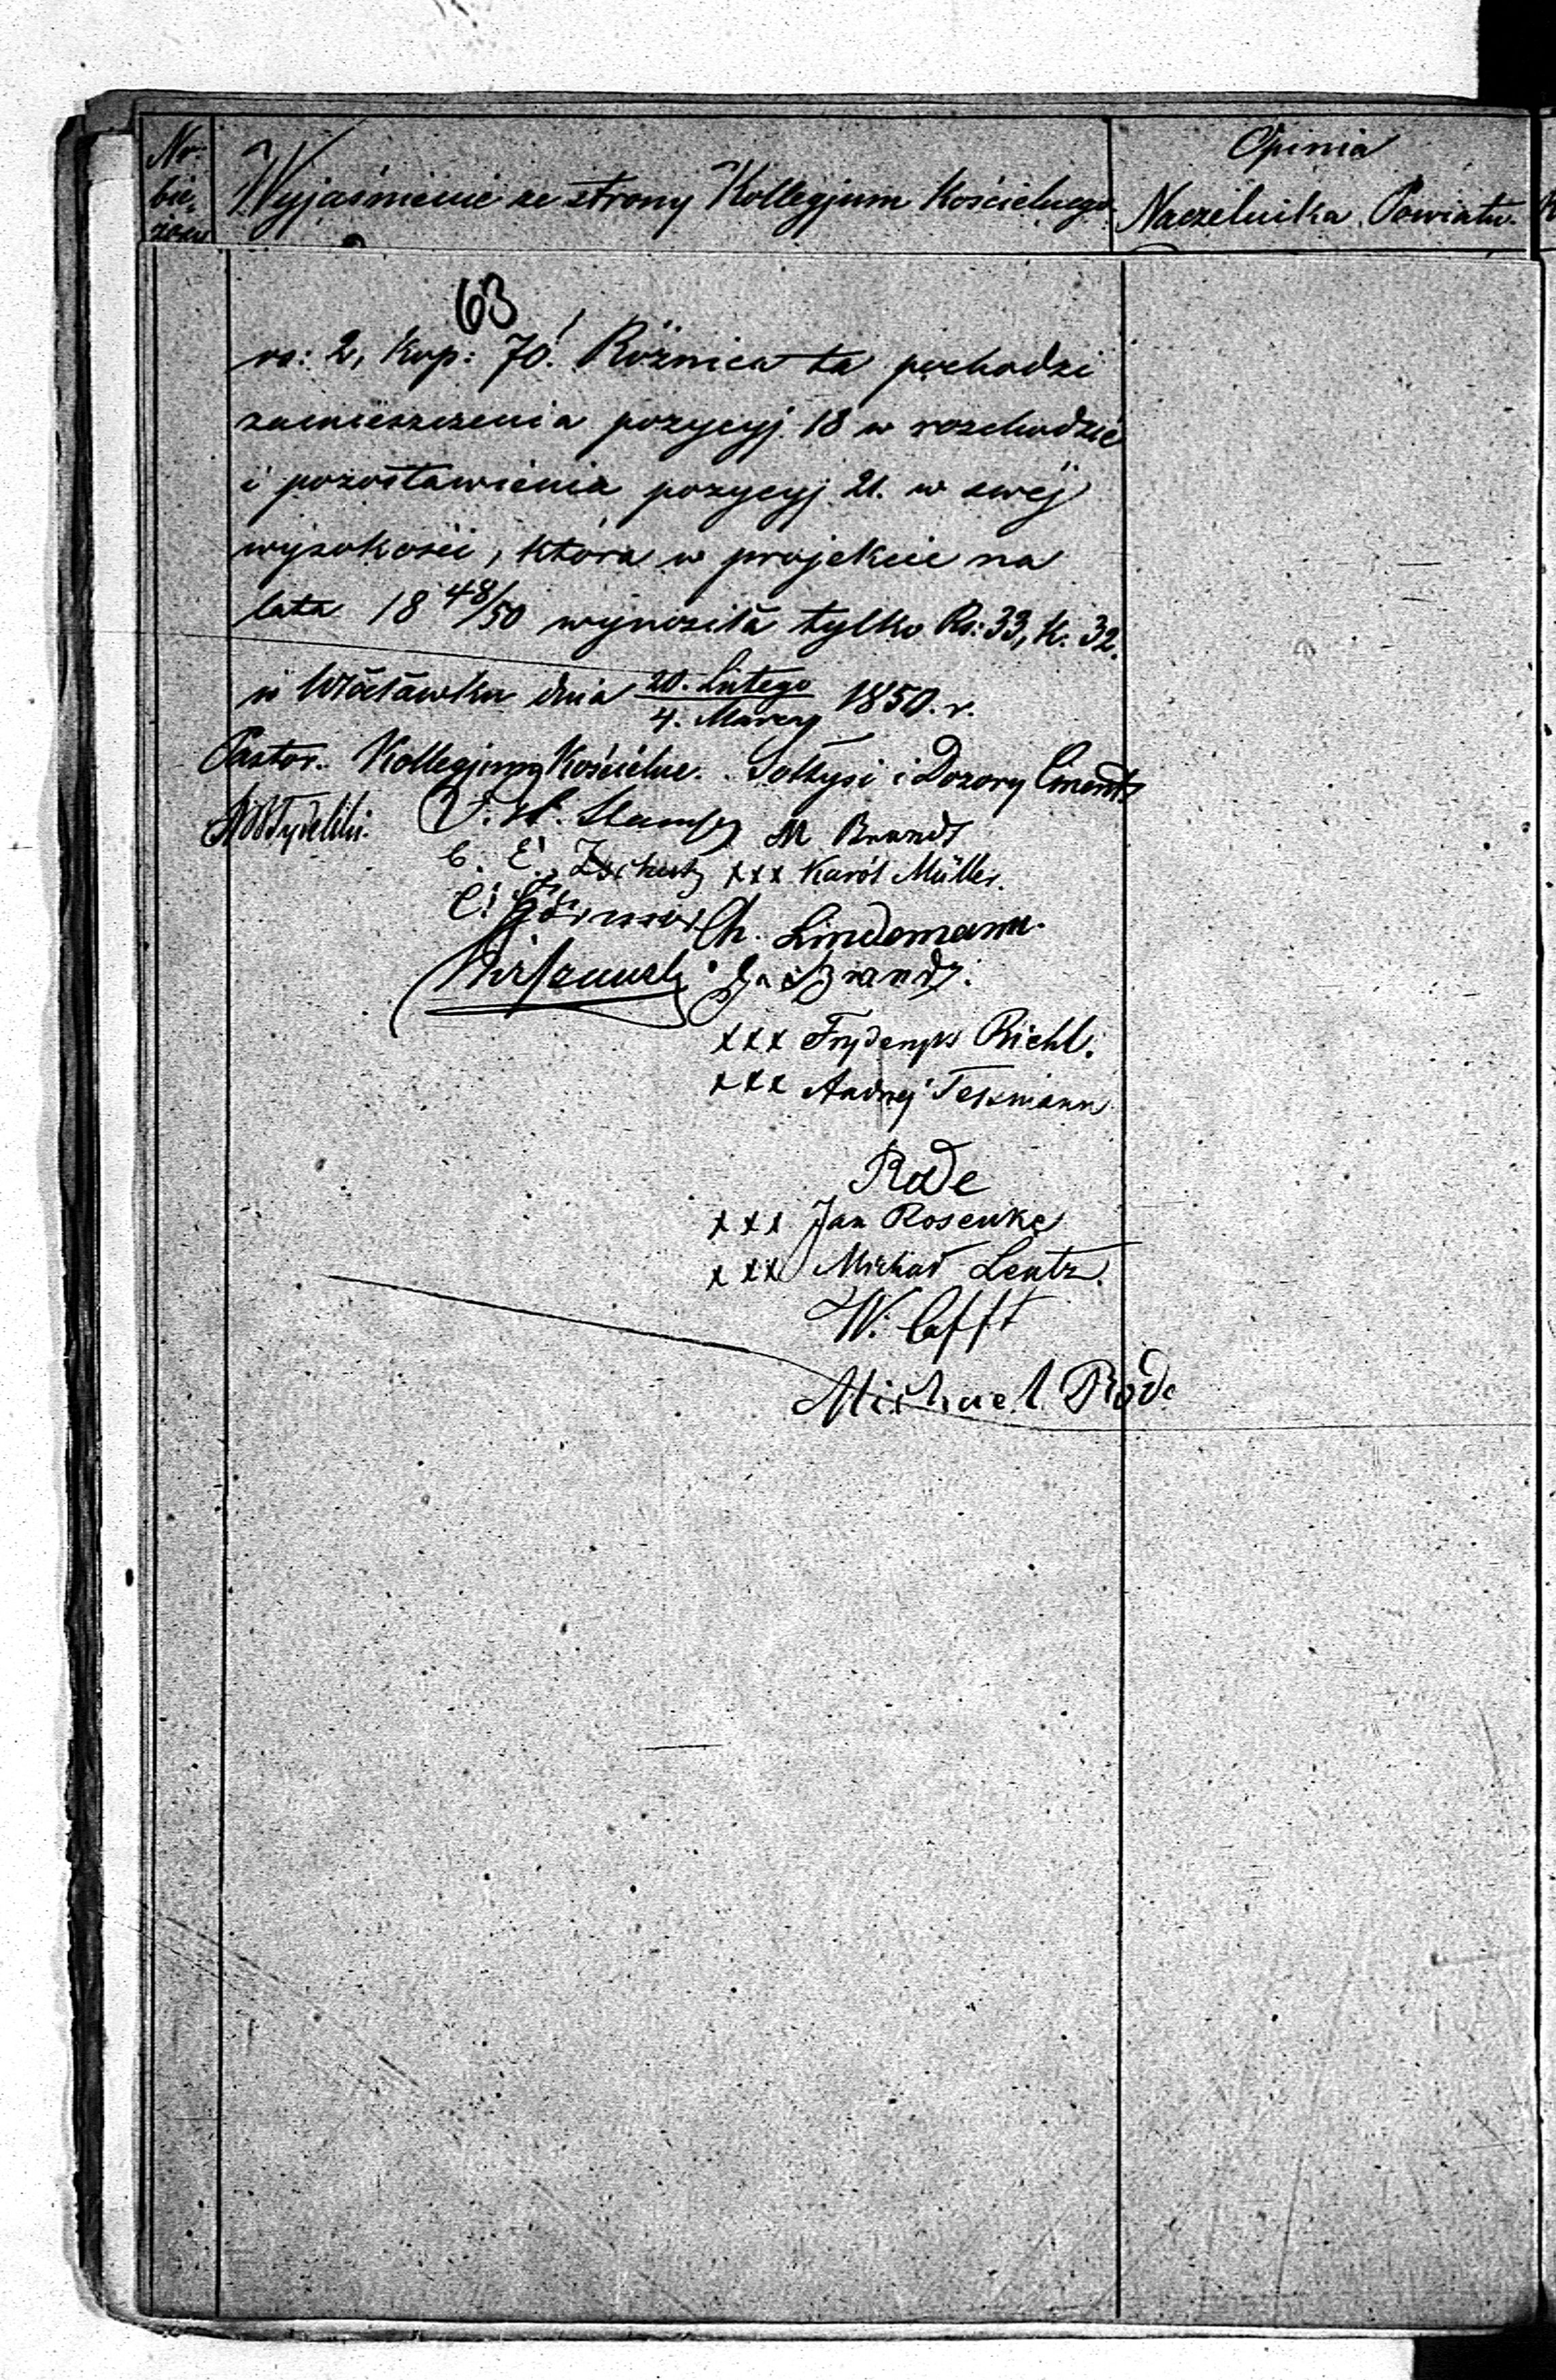 No.
bie-
żący
Wyjaśnienie ze strony Kollegjum Kościelnego.
Opinia
Naczelnika Powiatu.
63
rs: 2, kop: 70. Różnica ta pochodzi
zamieszczenia pozycyj 18 w rozchodzie
i pozostawienia pozycyj 21. w swej
wysokości, która w projekcie na
lata 18 48/50 wynosiła tylko Rs: 33, K. 32.
w Włocławku dnia 20. Lutego / 4. Marca 1850. r.
Pastor. Kollegjum Kościelne. Sołtysi i Dozory Cment.
M Brandt
C. E.
xxx Karól Müller.
Ch. Lindemann.
Brandt.
xxx Fryderyk Riehl.
xxx Andrzej Tesmann
Rode
xxx Jan Rosenke
xxx Michał Lentz.
W.
Michael Rode